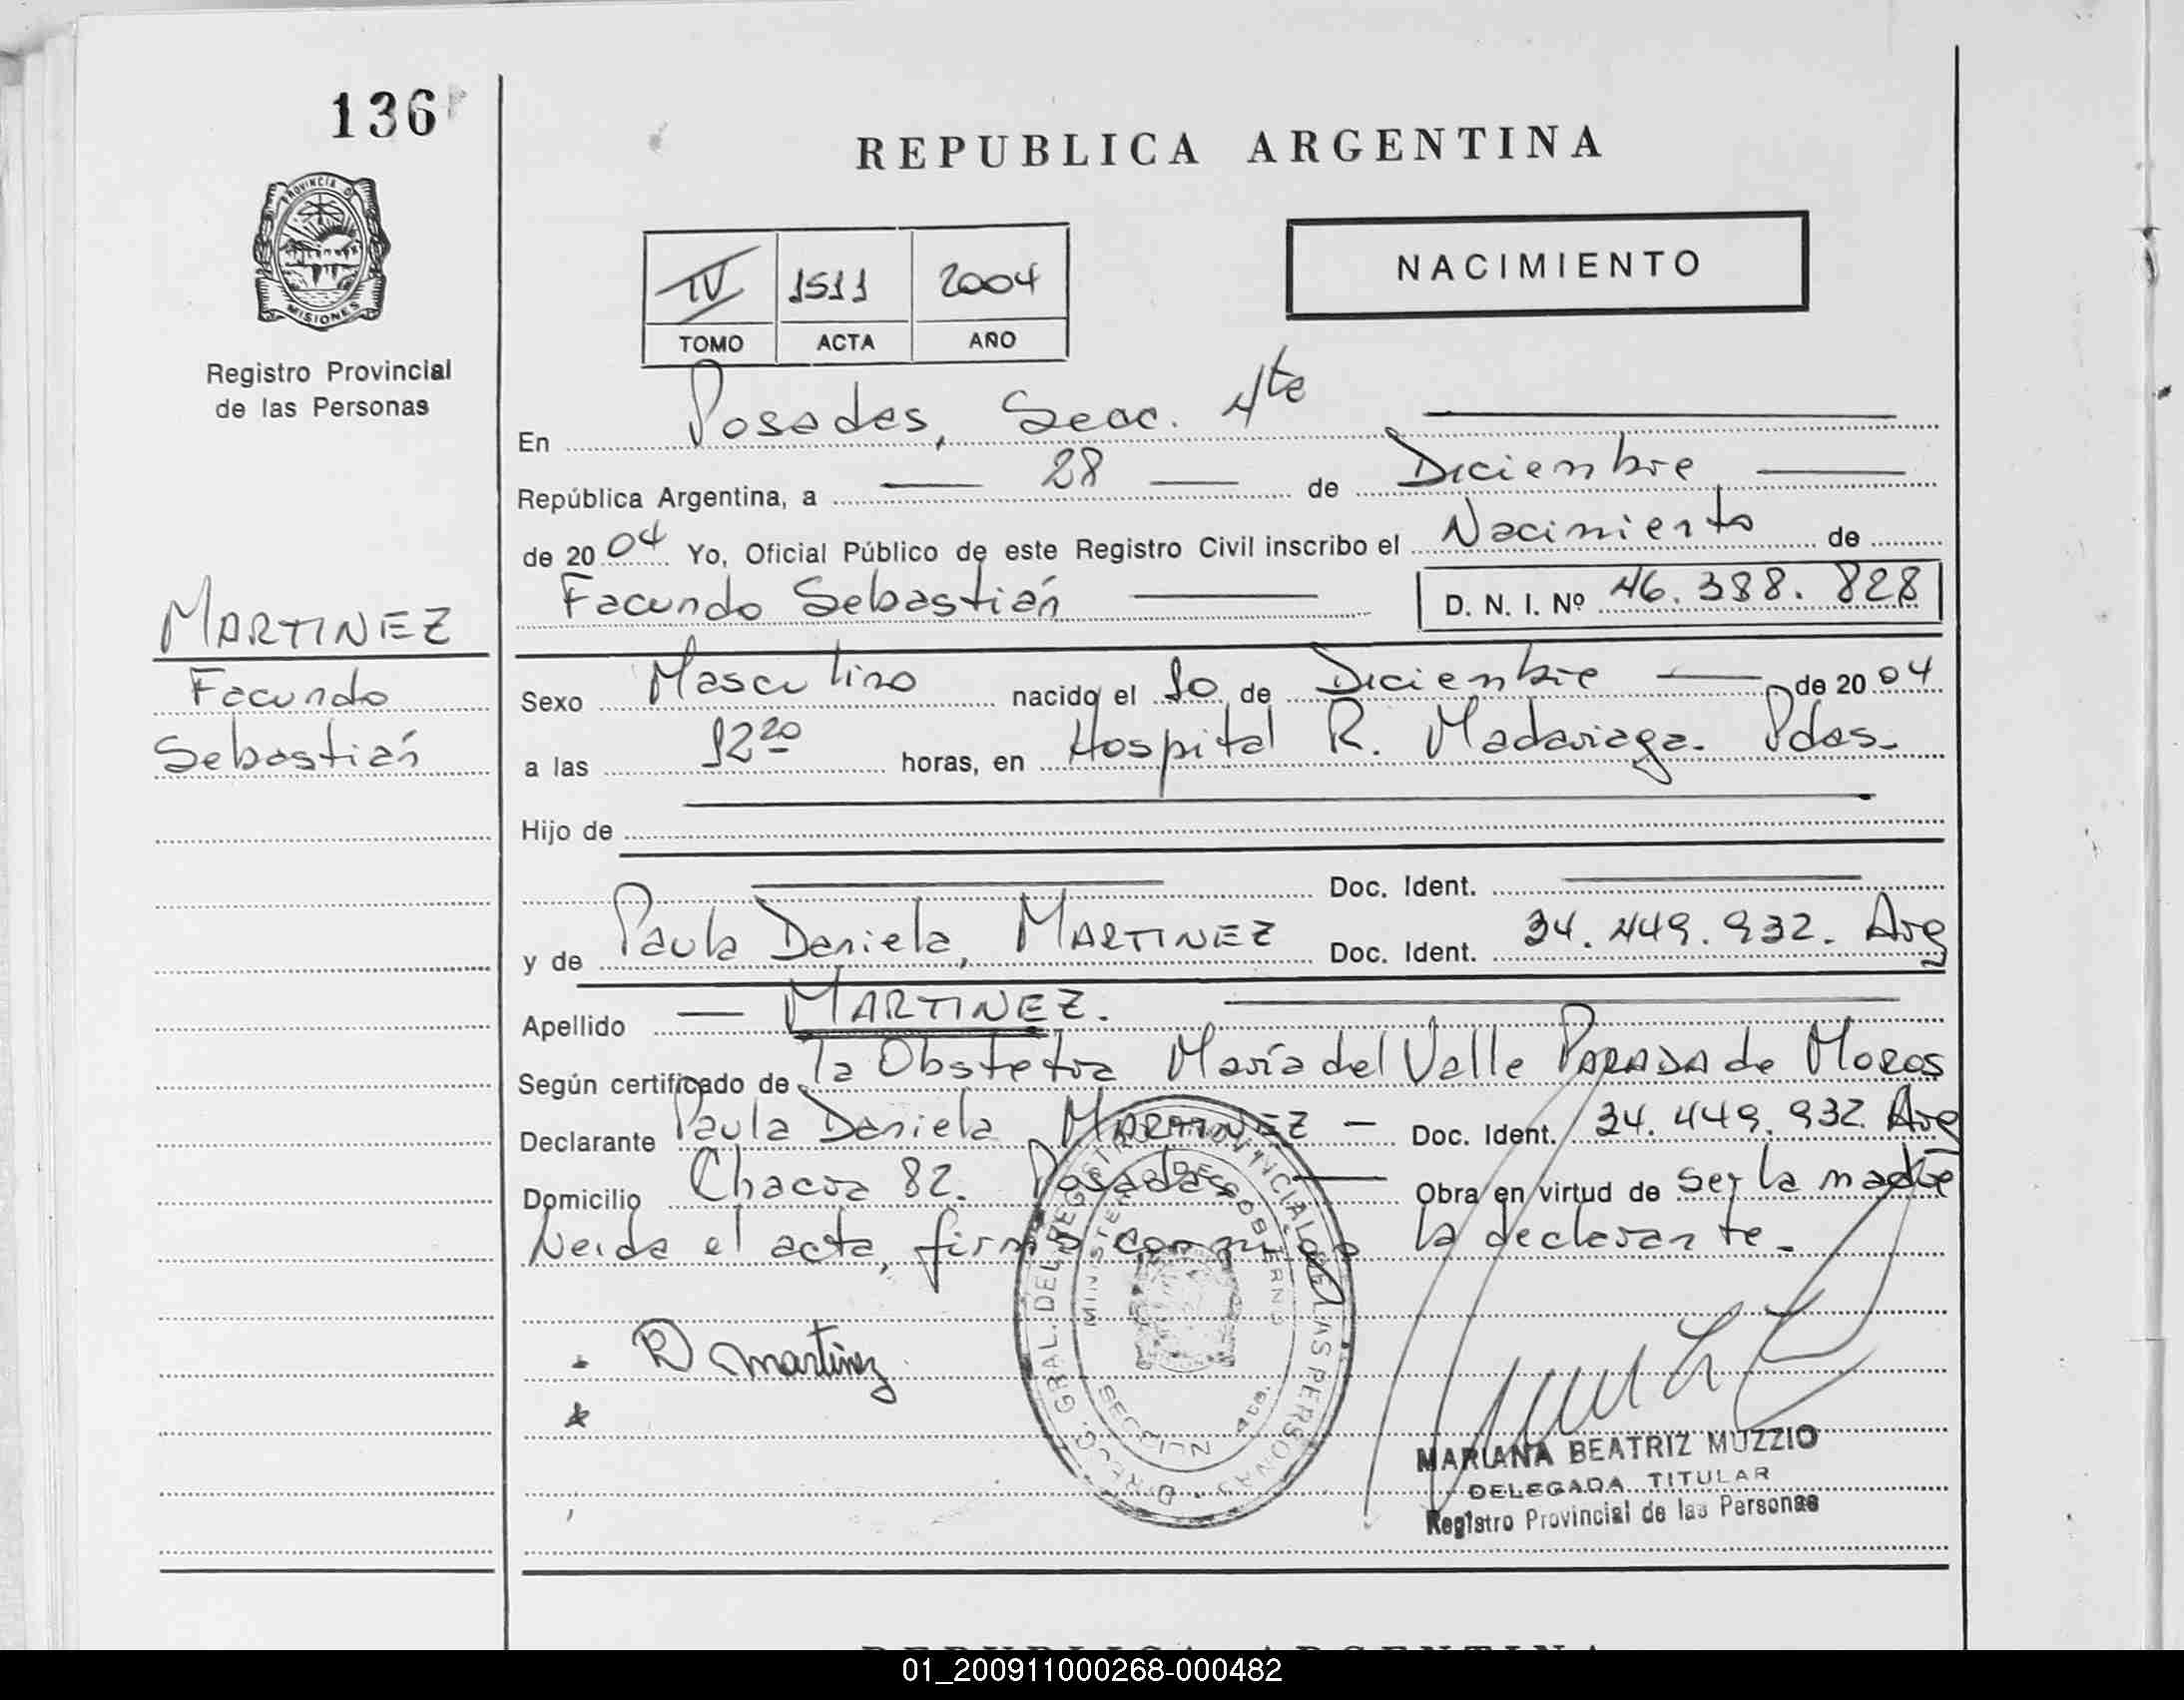 136
REPUBLICA ARGENTINA
PROVINCIA DE
MISIONES
Registro Provincial
de las Personas
NACIMIENTO
IV 1511 2004
TOMO ACTA AÑO
En Posadas, Secc. 4ta
República Argentina, a 28 de Diciembre
de 2004 Yo, Oficial Público de este Registro Civil inscribo el Nacimiento de
Facundo Sebastián D. N. I. Nº 46.388.828
MARTINEZ
Facundo
Sebastián
Sexo Masculino nacido el 10 de Diciembre de 2004
a las 12 20 horas, en Hospital R. Madariaga. Pdas.
Hijo de
Doc. Ident.
y de Paula Daniela, MARTINEZ Doc. Ident. 34.449.932. Arg
Apellido MARTINEZ.
Según certificado de la Obstetra María del Valle PARADA de Moros
Declarante Paula Daniela MARTINEZ Doc. Ident. 34.449.932 Arg
Domicilio Chacra 82. Posadas Obra en virtud de ser la madre
Leida el acta, firma conmigo la declarante.
DIRECC. GRAL. DEL REGISTRO PROVINCIAL DE LAS PERSONAS
MINISTERIO DE GOBIERNO
SECCION 4ta.
martinez
MARIANA BEATRIZ MUZZIO
DELEGADA TITULAR
Registro Provincial de las Personas
REPUBLICA ARGENTINA
01_200911000268-000482